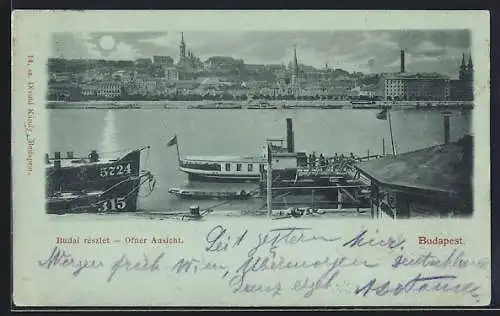 14, sz. Divald Károly, Budapest.
5724
315
Budai részlet — Ofner Ansicht.
Budapest.
Seit gestern hier.
Morgen früh Wien, Übermorgen Deutschland
Ganz